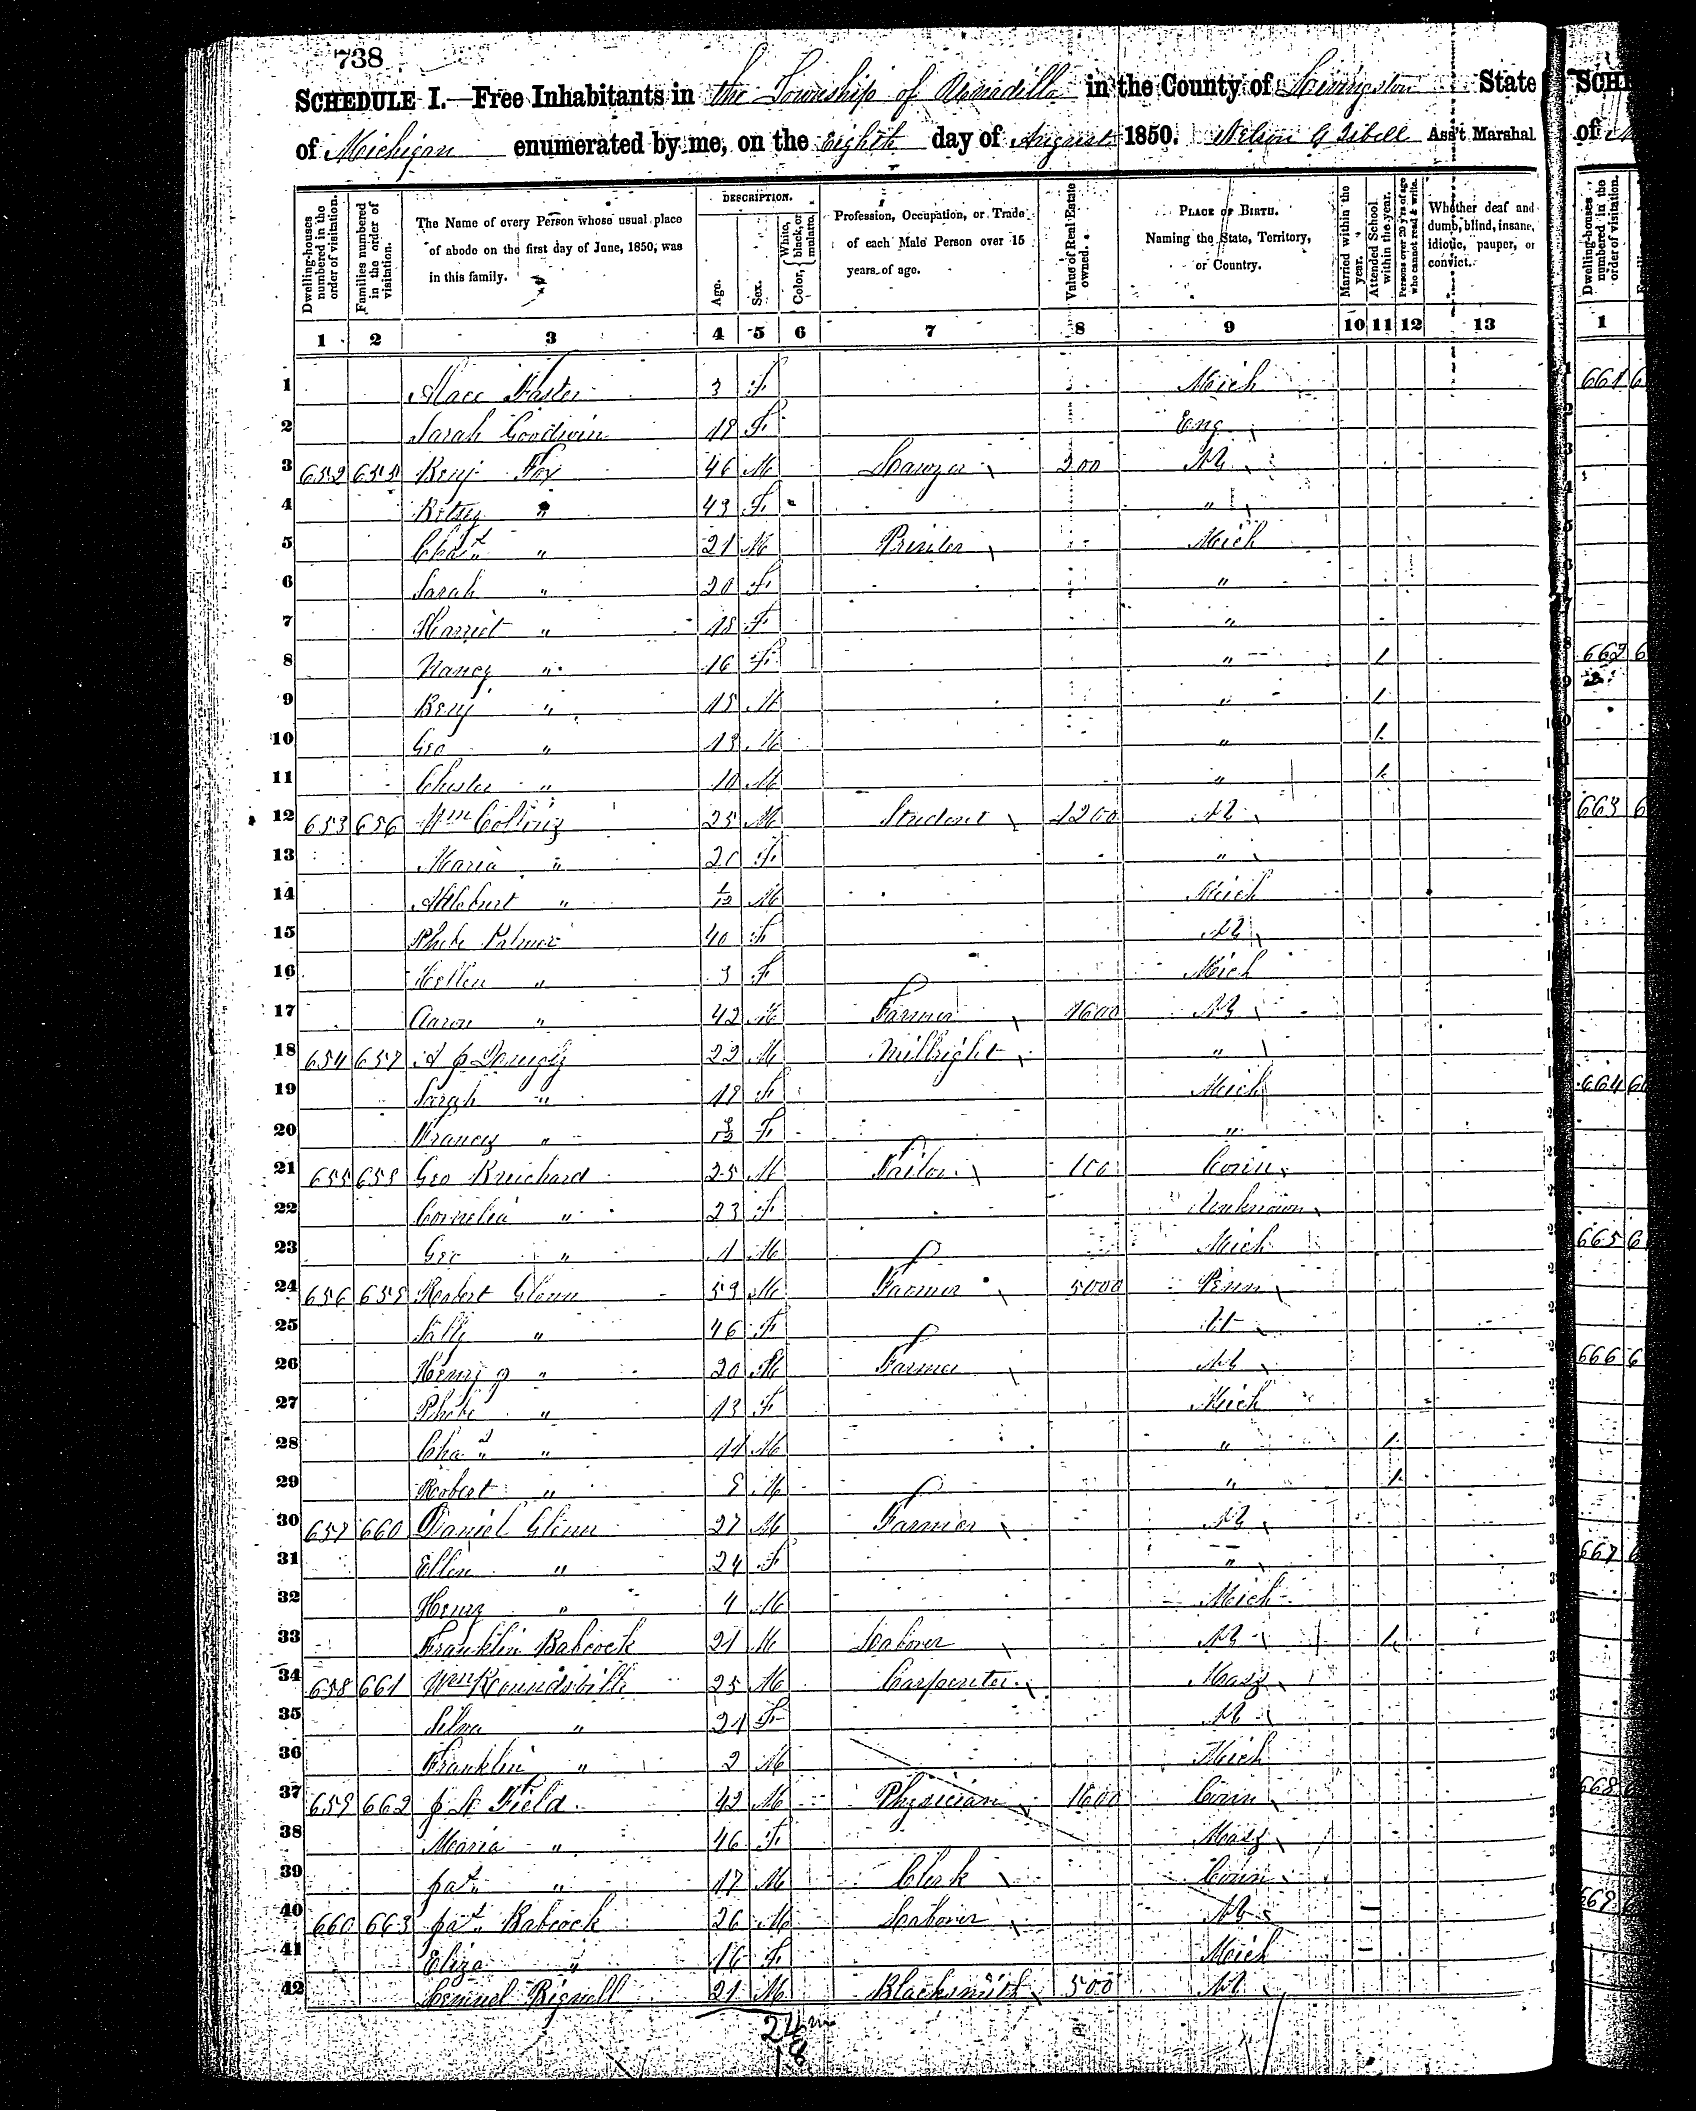 738
SCHEDULE I.—Free Inhabitants in the Township of Unadilla in the County of Livingston State
of Michigan enumerated by me, on the Eighth day of August 1850. Nelson G Isbell Ass't Marshal
Dwelling-houses numbered in the order of visitation. Families numbered in the order of visitation. The Name of every Person whose usual place of abode on the first day of June, 1850, was in this family. DESCRIPTION. Age. Sex. Color, White, black, or mulatto. Profession, Occupation, or Trade of each Male Person over 15 years of age. Value of Real Estate owned. PLACE OF BIRTH. Naming the State, Territory, or Country. Married within the year. Attended School within the year. Persons over 20 y'rs of age who cannot read & write. Whether deaf and dumb, blind, insane, idiotic, pauper, or convict.
1 2 3 4 5 6 7 8 9 10 11 12 13
1 3 F Mich
2 Sarah Goodwin 18 F Eng
3 652 655 Benj Fox 46 M 200 NY
4 Betsy " 43 F "
5 Chas " 21 M Printer Mich
6 Sarah " 20 F "
7 Harriet " 18 F "
8 Nancy " 16 F " 1
9 Benj " 15 M " 1
10 Geo " 13 M " 1
11 Chester " 10 M " 1
12 653 656 Wm 25 M Student 1200 NY
13 Maria " 20 F "
14 " 1/12 M Mich
15 Phebe Palmer 40 F NY
16 Hellen " 3 F Mich
17 Aaron " 42 M Farmer 1600 NY
18 654 657 22 M Millright "
19 Sarah " 18 F Mich
20 Francis " F "
21 655 658 Geo 25 M Tailor 100 Conn
22 Cornelia " 23 F Unknown
23 Geo " 1 M Mich
24 656 659 Robert Glenn 59 M Farmer 5000 Penn
25 Sally " 46 F Vt
26 Henry " 20 M Farmer NY
27 Phebe " 13 F Mich
28 Chas " 11 M " 1
29 Robert " 8 M " 1
30 657 660 Daniel Glenn 27 M Farmer NY
31 Ellen " 24 F "
32 Henry " 4 M Mich
33 Franklin Babcock 21 M Laborer NY 1
34 658 661 Wm 25 M Carpenter Mass
35 " 21 F NY
36 Franklin " 2 M Mich
37 659 662 Field 42 M Physician 1600 Conn
38 Maria " 46 F Mass
39 Jas " 17 M Clerk Conn
40 660 663 Jas Babcock 26 M Laborer NY
41 Eliza " 16 F Mich
42 Lemuel Bignell 21 M Blacksmith 500 NY
24 m
18
SCHE
of
Dwelling-houses numbered in the order of visitation.
1
661
662
663
664
665
666
667
668
669